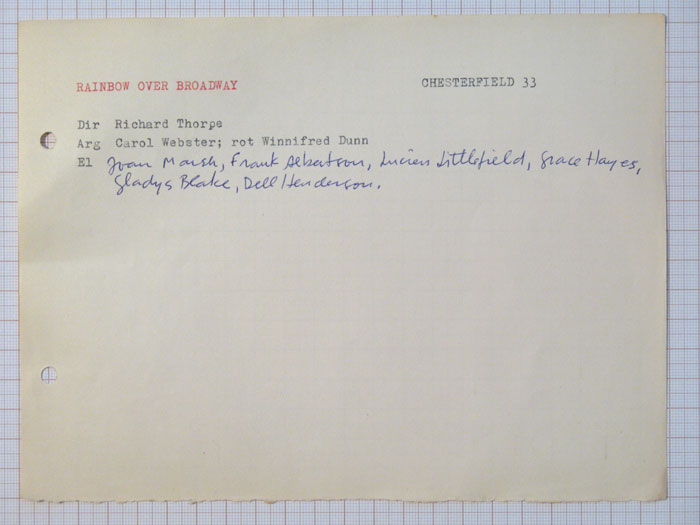 RAINBOW OVER BROADWAY CHESTERFIELD 33
Dir Richard Thorpe
Arg Carol Webster; rot Winnifred Dunn
El Joan Marsh, Frank Albertson, Lucien Littlefield, Grace Hayes,
Gladys Blake, Dell Henderson.